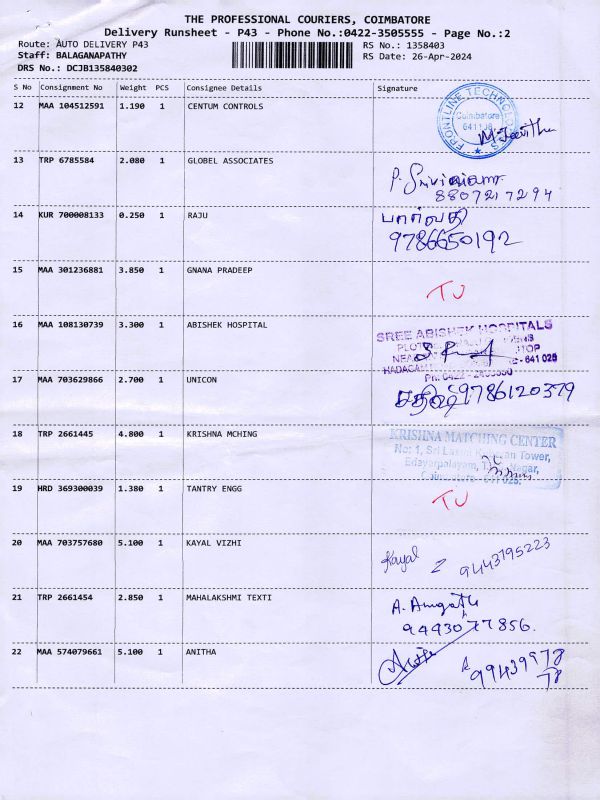 THE PROFESSIONAL COURIERS, COIMBATORE
Delivery Runsheet - P43 - Phone No.:0422-3505555 - Page No.:2
Route: AUTO DELIVERY P43 RS No.: 1358403
Staff: BALAGANAPATHY RS Date: 26-Apr-2024
DRS No.: DCJB135840302
S No Consignment No Weight PCS Consignee Details Signature
12 MAA 104512591 1.190 1 CENTUM CONTROLS
FRONTLINE TECHNOLOGIES
Coimbatore
13 TRP 6785584 2.080 1 GLOBEL ASSOCIATES
8807217294
14 KUR 700008133 0.250 1 RAJU பார்வதி
9786650192
15 MAA 301236881 3.850 1 GNANA PRADEEP
TU
16 MAA 108130739 3.300 1 ABISHEK HOSPITAL SREE ABISHEK HOSPITALS
641 025
17 MAA 703629866 2.700 1 UNICON
9786120379
18 TRP 2661445 4.800 1 KRISHNA MCHING KRISHNA MATCHING CENTER
No: 1, Sri Tower,
Edayarpalayam, Nagar,
19 HRD 369300039 1.380 1 TANTRY ENGG
TU
20 MAA 703757680 5.100 1 KAYAL VIZHI
Kayal 9443795223
21 TRP 2661454 2.850 1 MAHALAKSHMI TEXTI
9493077856.
22 MAA 574079661 5.100 1 ANITHA
99439978
78